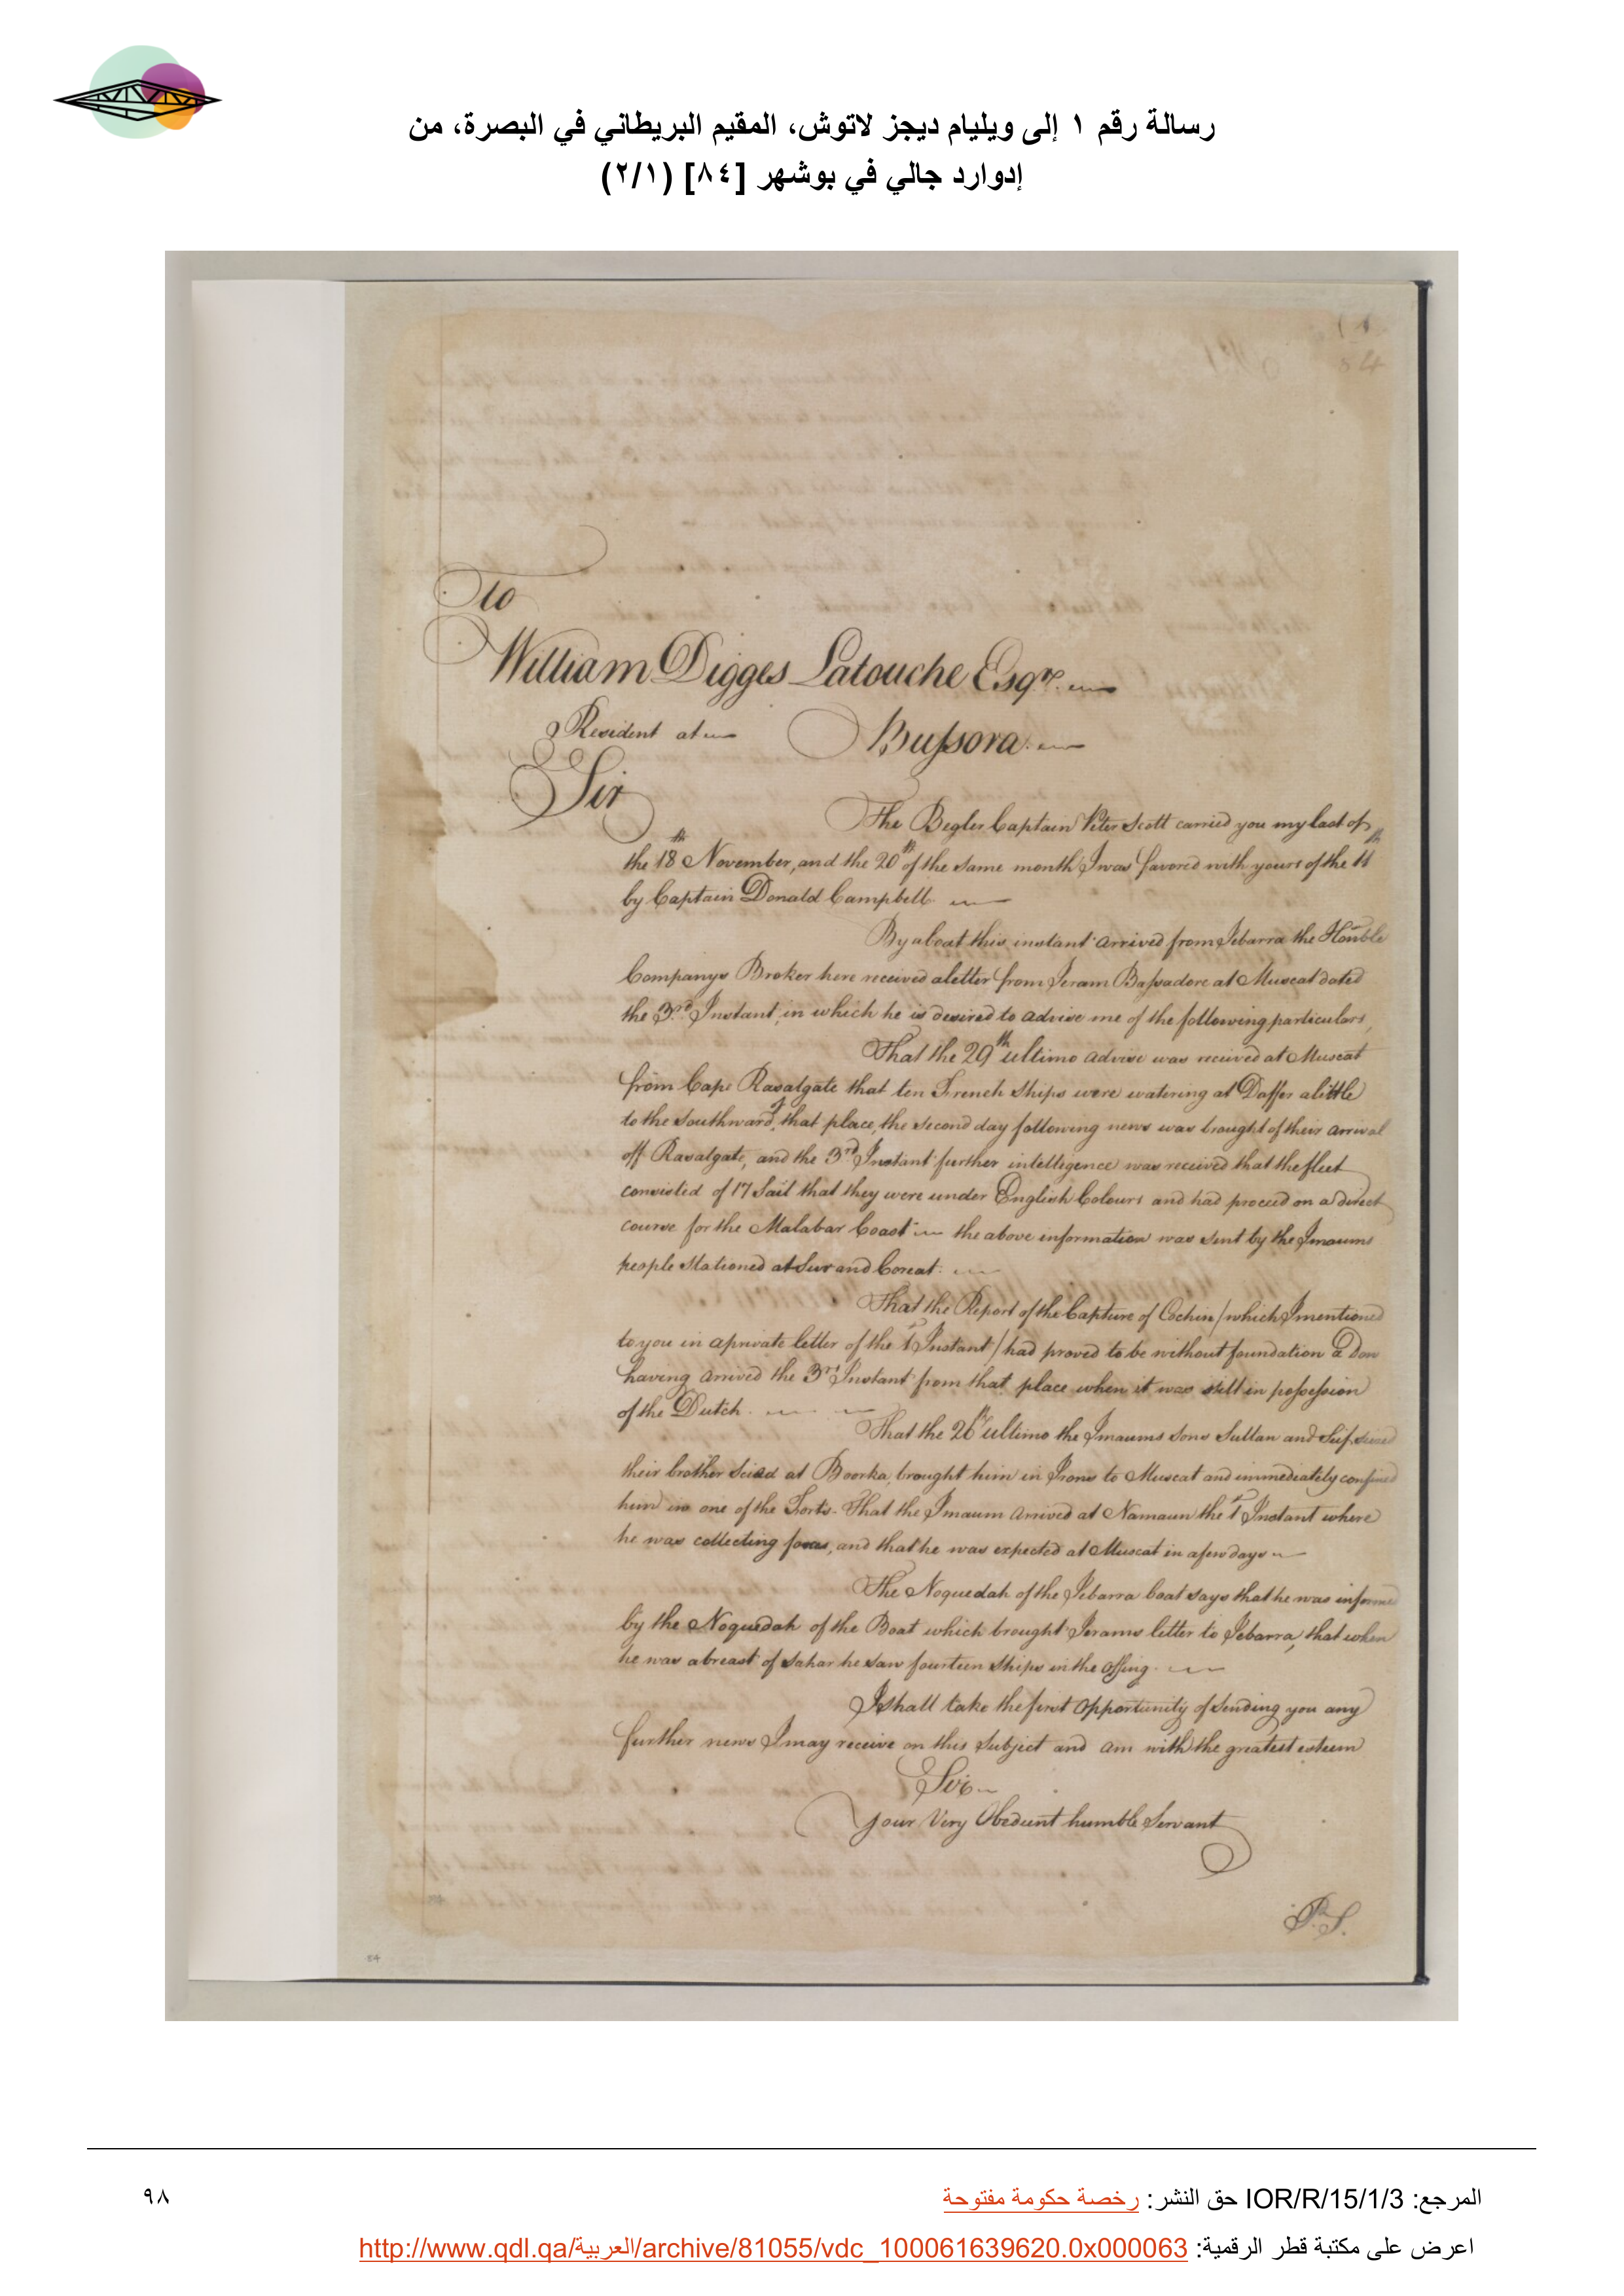 رسالة رقم ١ إلى ويليام ديجز لاتوش، المقيم البريطاني في البصرة، من
إدوارد جالي في بوشهر [٨٤] (٢/١)
No. 1
84
To
William Digges Latouche Esqr.
Resident at Bussora.
Sir
The Begler Captain Peter Scott carried you my last of
the 18th November, and the 20th of the same month I was favored with yours of the 11th
by Captain Donald Campbell
By a boat this instant arrived from Jebarra the Honble
Companys Broker here received a letter from Jeram Bassadore at Muscat dated
the 3rd Instant, in which he is desired to advise me of the following particulars,
That the 29th ultimo advise was received at Muscat
from Cape Rasalgate that ten French Ships were watering at Daffer a little
to the Southward of that place, the second day following news was brought of their arrival
off Rasalgate, and the 3rd Instant further intelligence was received that the fleet
consisted of 17 Sail that they were under English Colours and had proceed on a direct
course for the Malabar Coast the above information was sent by the Imaums
people Stationed at Sur and Coreat.
That the Report of the Capture of Cochin / which I mentioned
to you in a private letter of the 1st Instant / had proved to be without foundation a Dow
having arrived the 3rd Instant from that place when it was still in possession
of the Dutch.
That the 26th ultimo the Imaums Sons Sultan and Seif seized
their brother Scied at Boorka, brought him in Irons to Muscat and immediately confined
him in one of the Forts. That the Imaum arrived at Namaun the 1st Instant where
he was collecting forces, and that he was expected at Muscat in a few days
The Noquedah of the Jebarra boat says that he was informed
by the Noquedah of the Boat which brought Jerams letter to Jebarra, that when
he was abreast of Sahar he saw fourteen Ships in the offing.
I shall take the first opportunity of sending you any
further news I may receive on this Subject and am with the greatest esteem
Sir
Your Very Obedient humble Servant
P.S.
84
المرجع: IOR/R/15/1/3 حق النشر: رخصة حكومة مفتوحة
٩٨
اعرض على مكتبة قطر الرقمية: http://www.qdl.qa/العربية/archive/81055/vdc_100061639620.0x000063